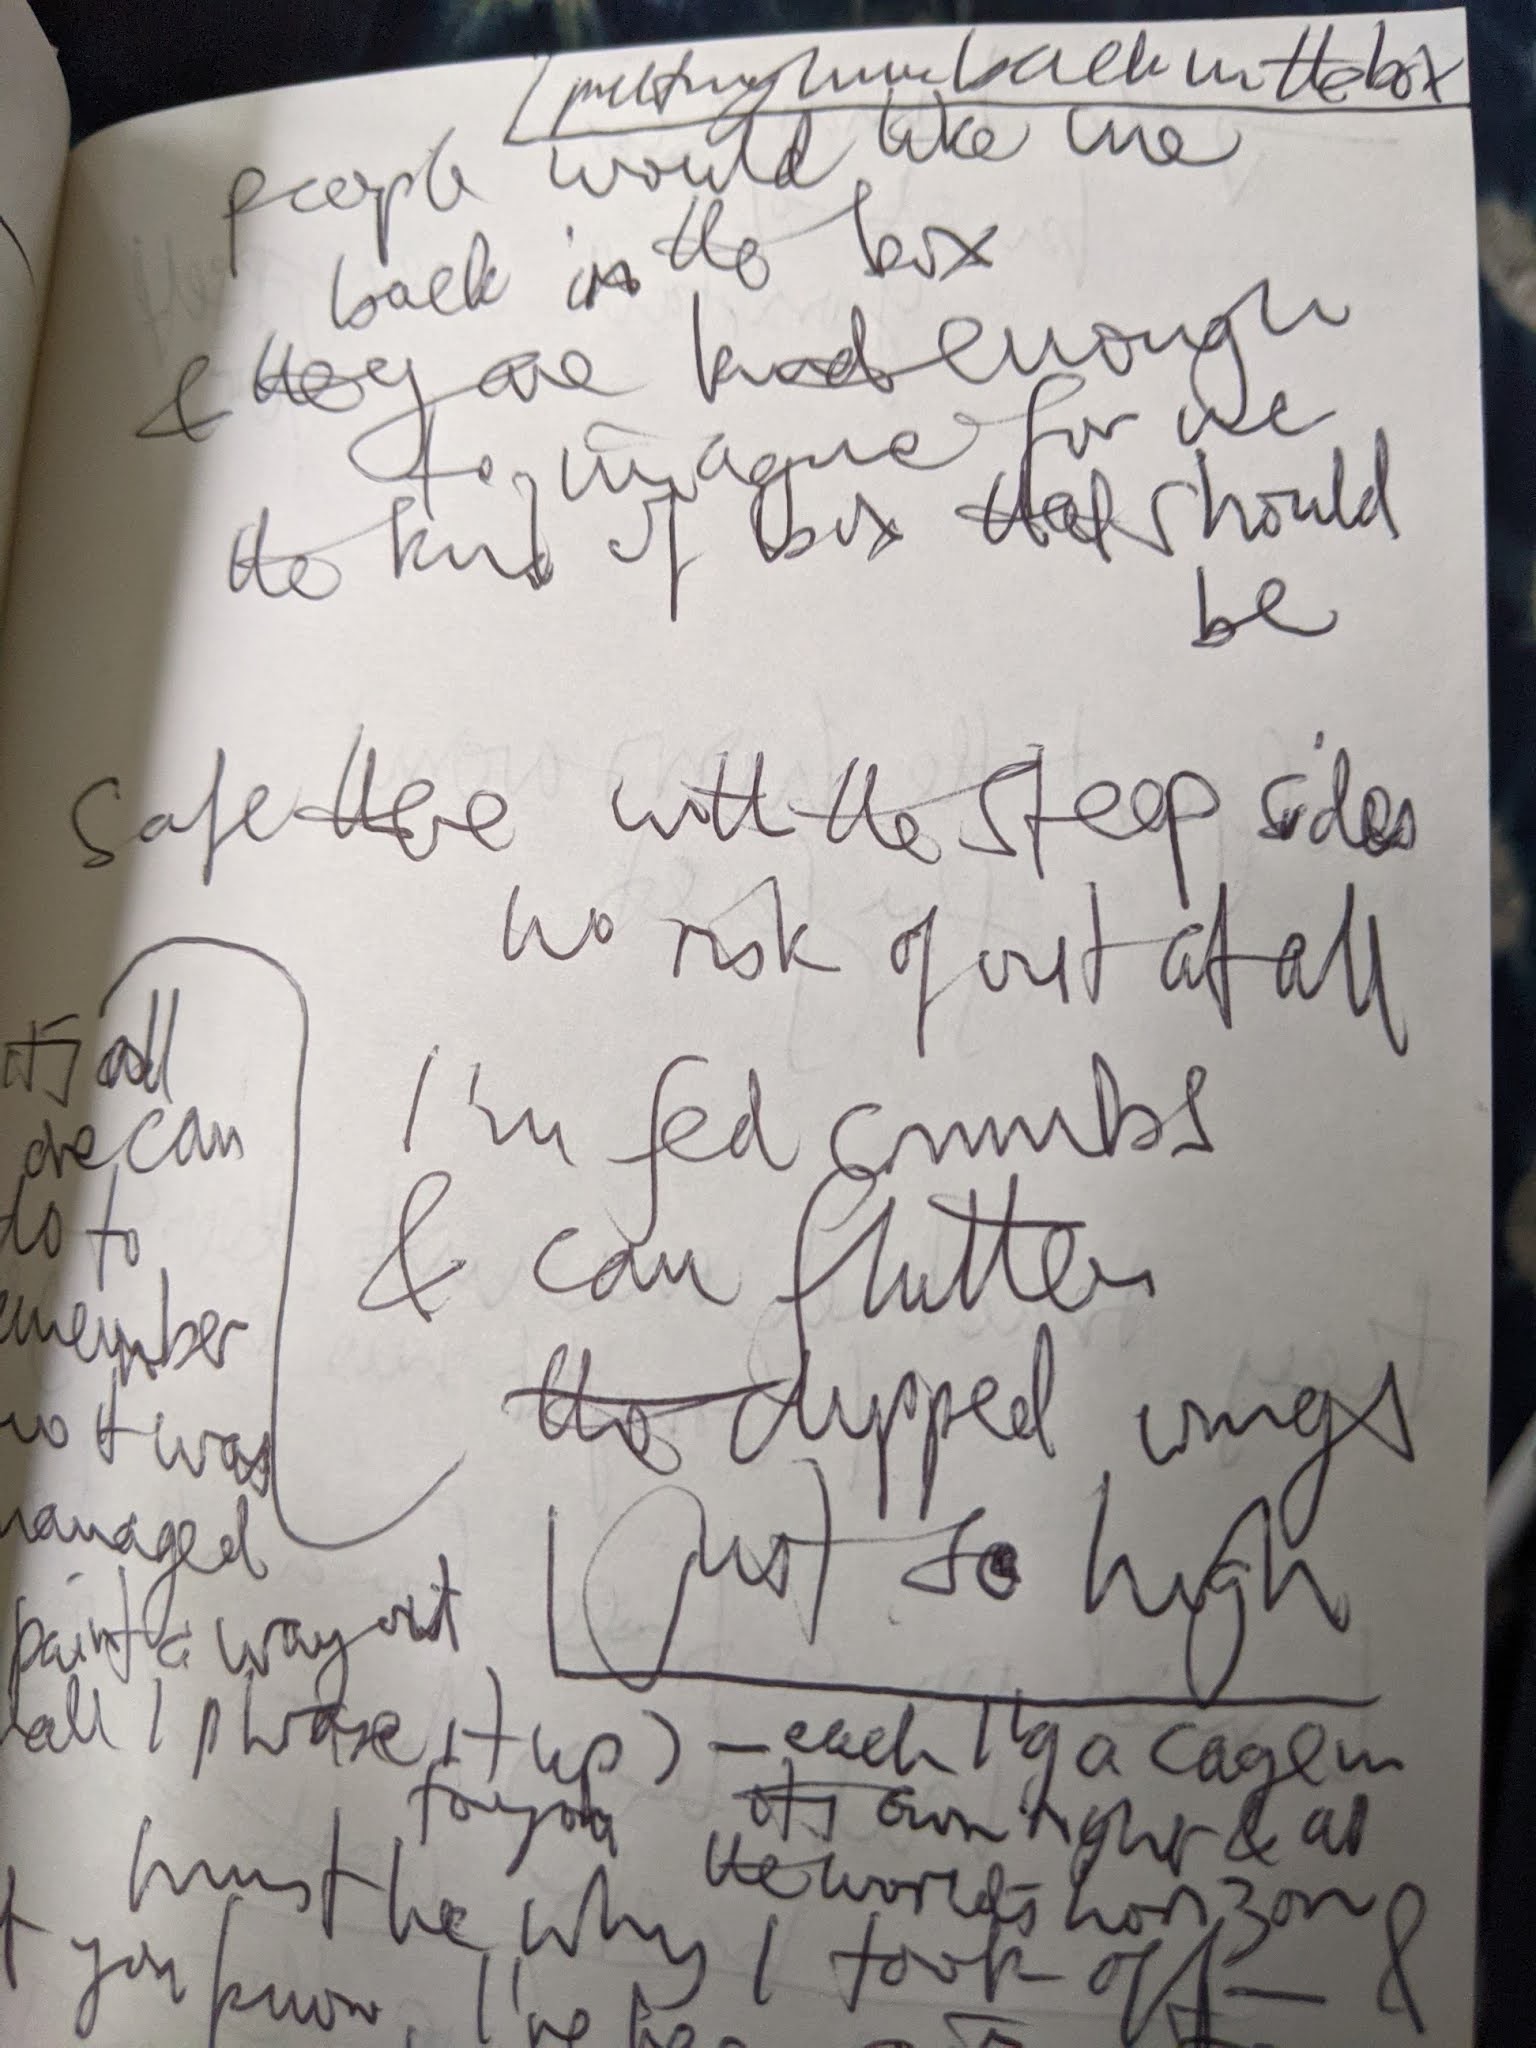 putting him back in the box
people would like me
back in the box
& they are kind enough
to imagine for me
the kind of box that should
be
safe there with the steep sides
no risk of out at all
I'm fed crumbs
& can flutter
the clipped wings
just so high
it's all
one can
do to
remember
not was
managed
paint a way out
all I phrase it up) – each a cage in
to you its own right & all
the world's horizon
must be why I took off — &
you know, I've